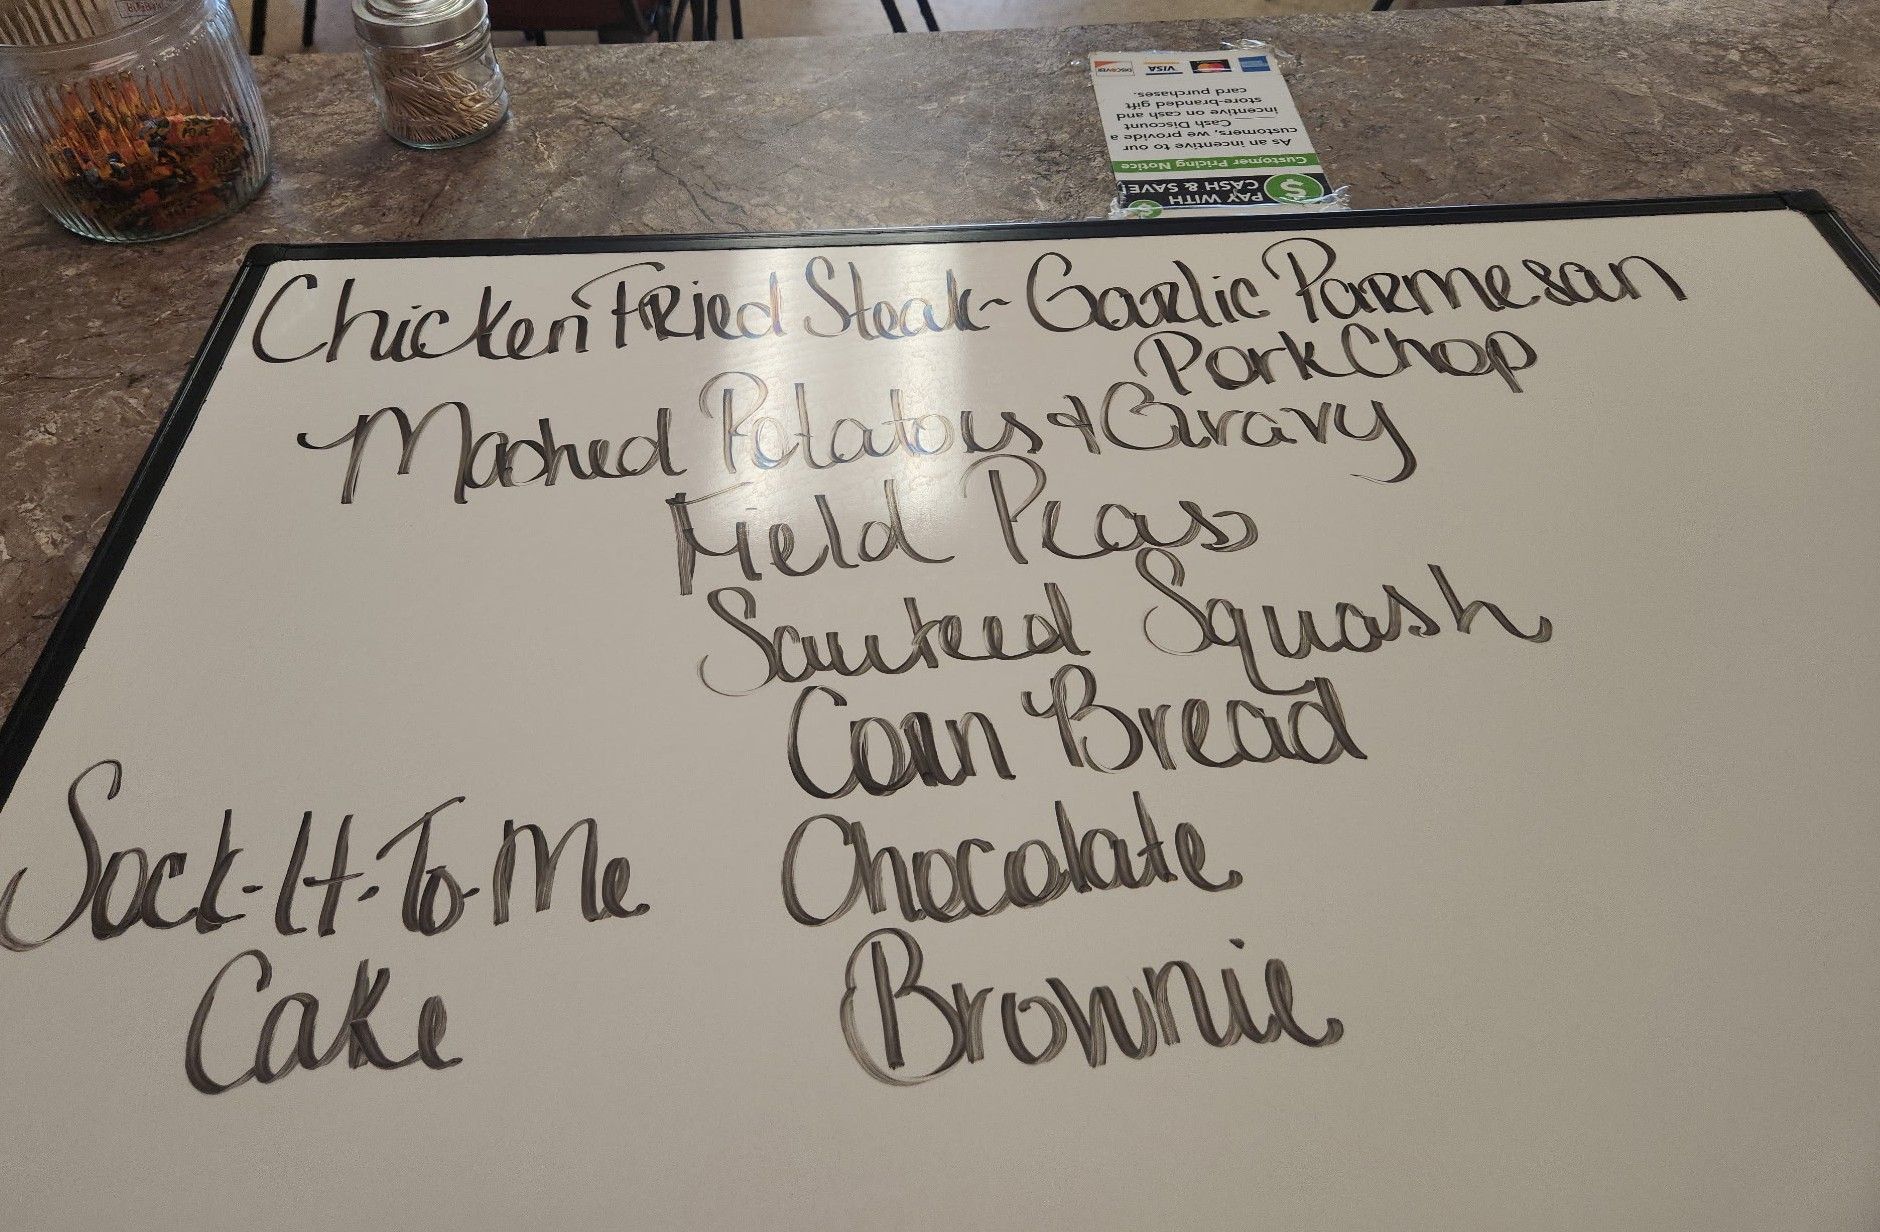 DISCOVER VISA
As an incentive to our
customers, we provide a
Cash Discount
incentive on cash and
store-branded gift
card purchases.
Customer Pricing Notice
PAY WITH
CASH & SAVE!
Chicken Fried Steak - Garlic Parmesan
Pork Chop
Mashed Potatoes & Gravy
Field Peas
Sauteed Squash
Corn Bread
Sock-It-To-Me
Cake
Chocolate
Brownie